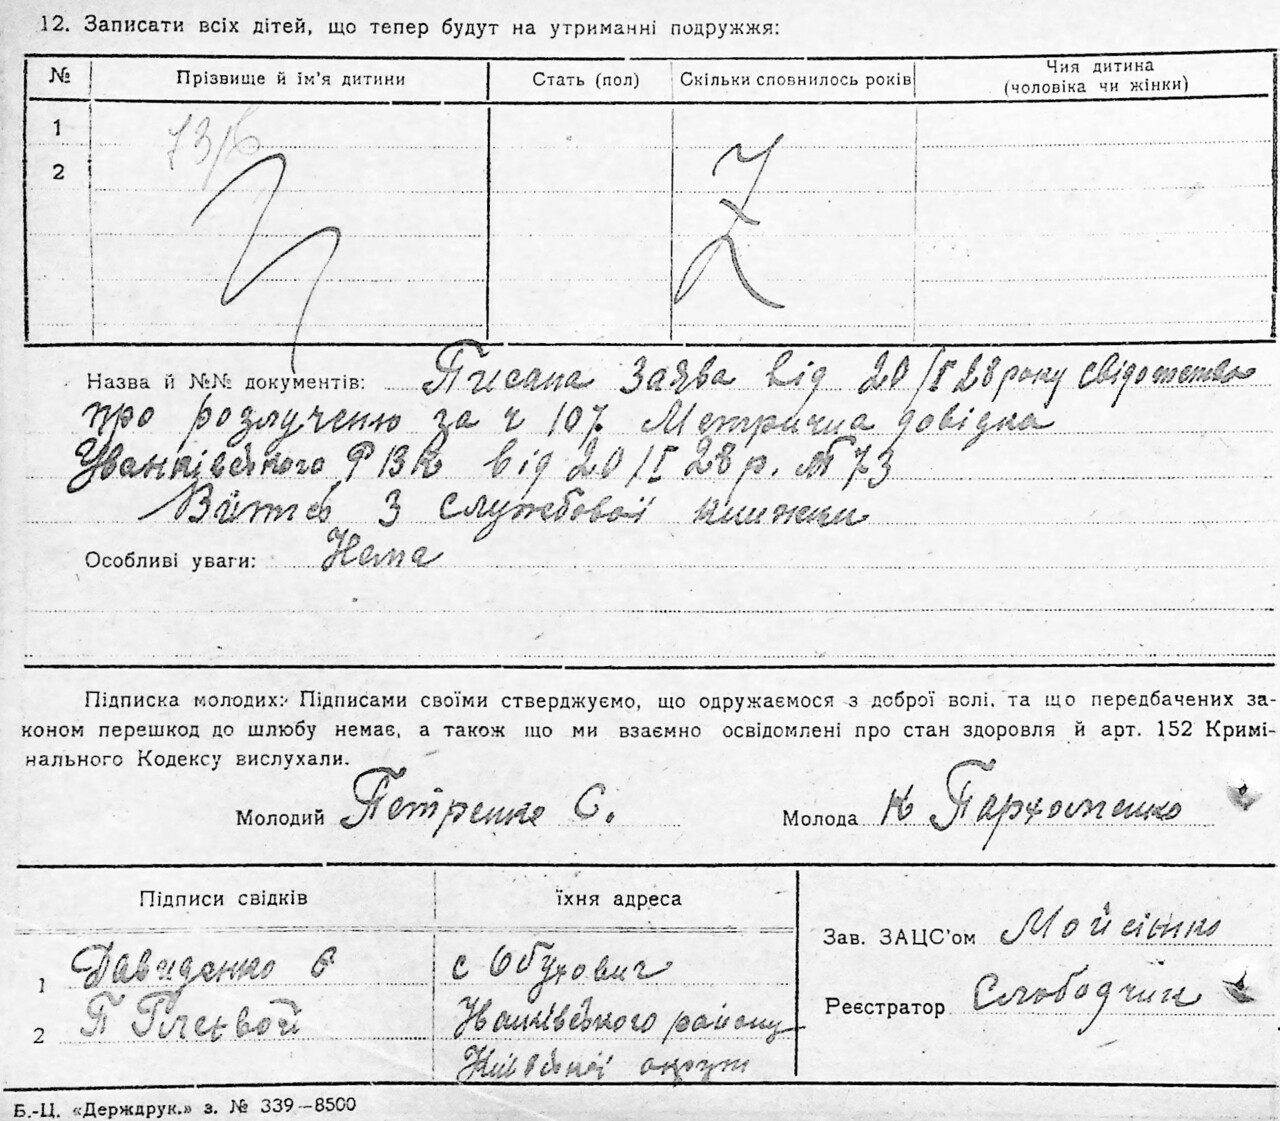 12. Записати всіх дітей, що тепер будут на утриманні подружжя:
№ Прізвище й ім'я дитини Стать (пол) Скільки сповнилось років Чия дитина (чоловіка чи жінки)
1 73/6
2
Назва й №№ документів: Писана Заява від 20/II 28 року свідотство
про розлученю за ч 107 Метрична довідка
Іванківського РВК від 20/II 28 р. № 73
Витяг з службової книжки
Особливі уваги: Нема
Підписка молодих: Підписами своїми стверджуємо, що одружаємося з доброї волі, та що передбачених за-
коном перешкод до шлюбу немає, а також що ми взаємно освідомлені про стан здоровля й арт. 152 Кримі-
нального Кодексу вислухали.
Молодий Петренко С. Молода К Пархоменко
Підписи свідків їхня адреса
Зав. ЗАЦС'ом Мойсієнко
1 Давиденко с Обуховичі
Реєстратор Слободчик
2 П Іванківського району
Київської округи
Б.-Ц. «Держдрук.» з. № 339–8500